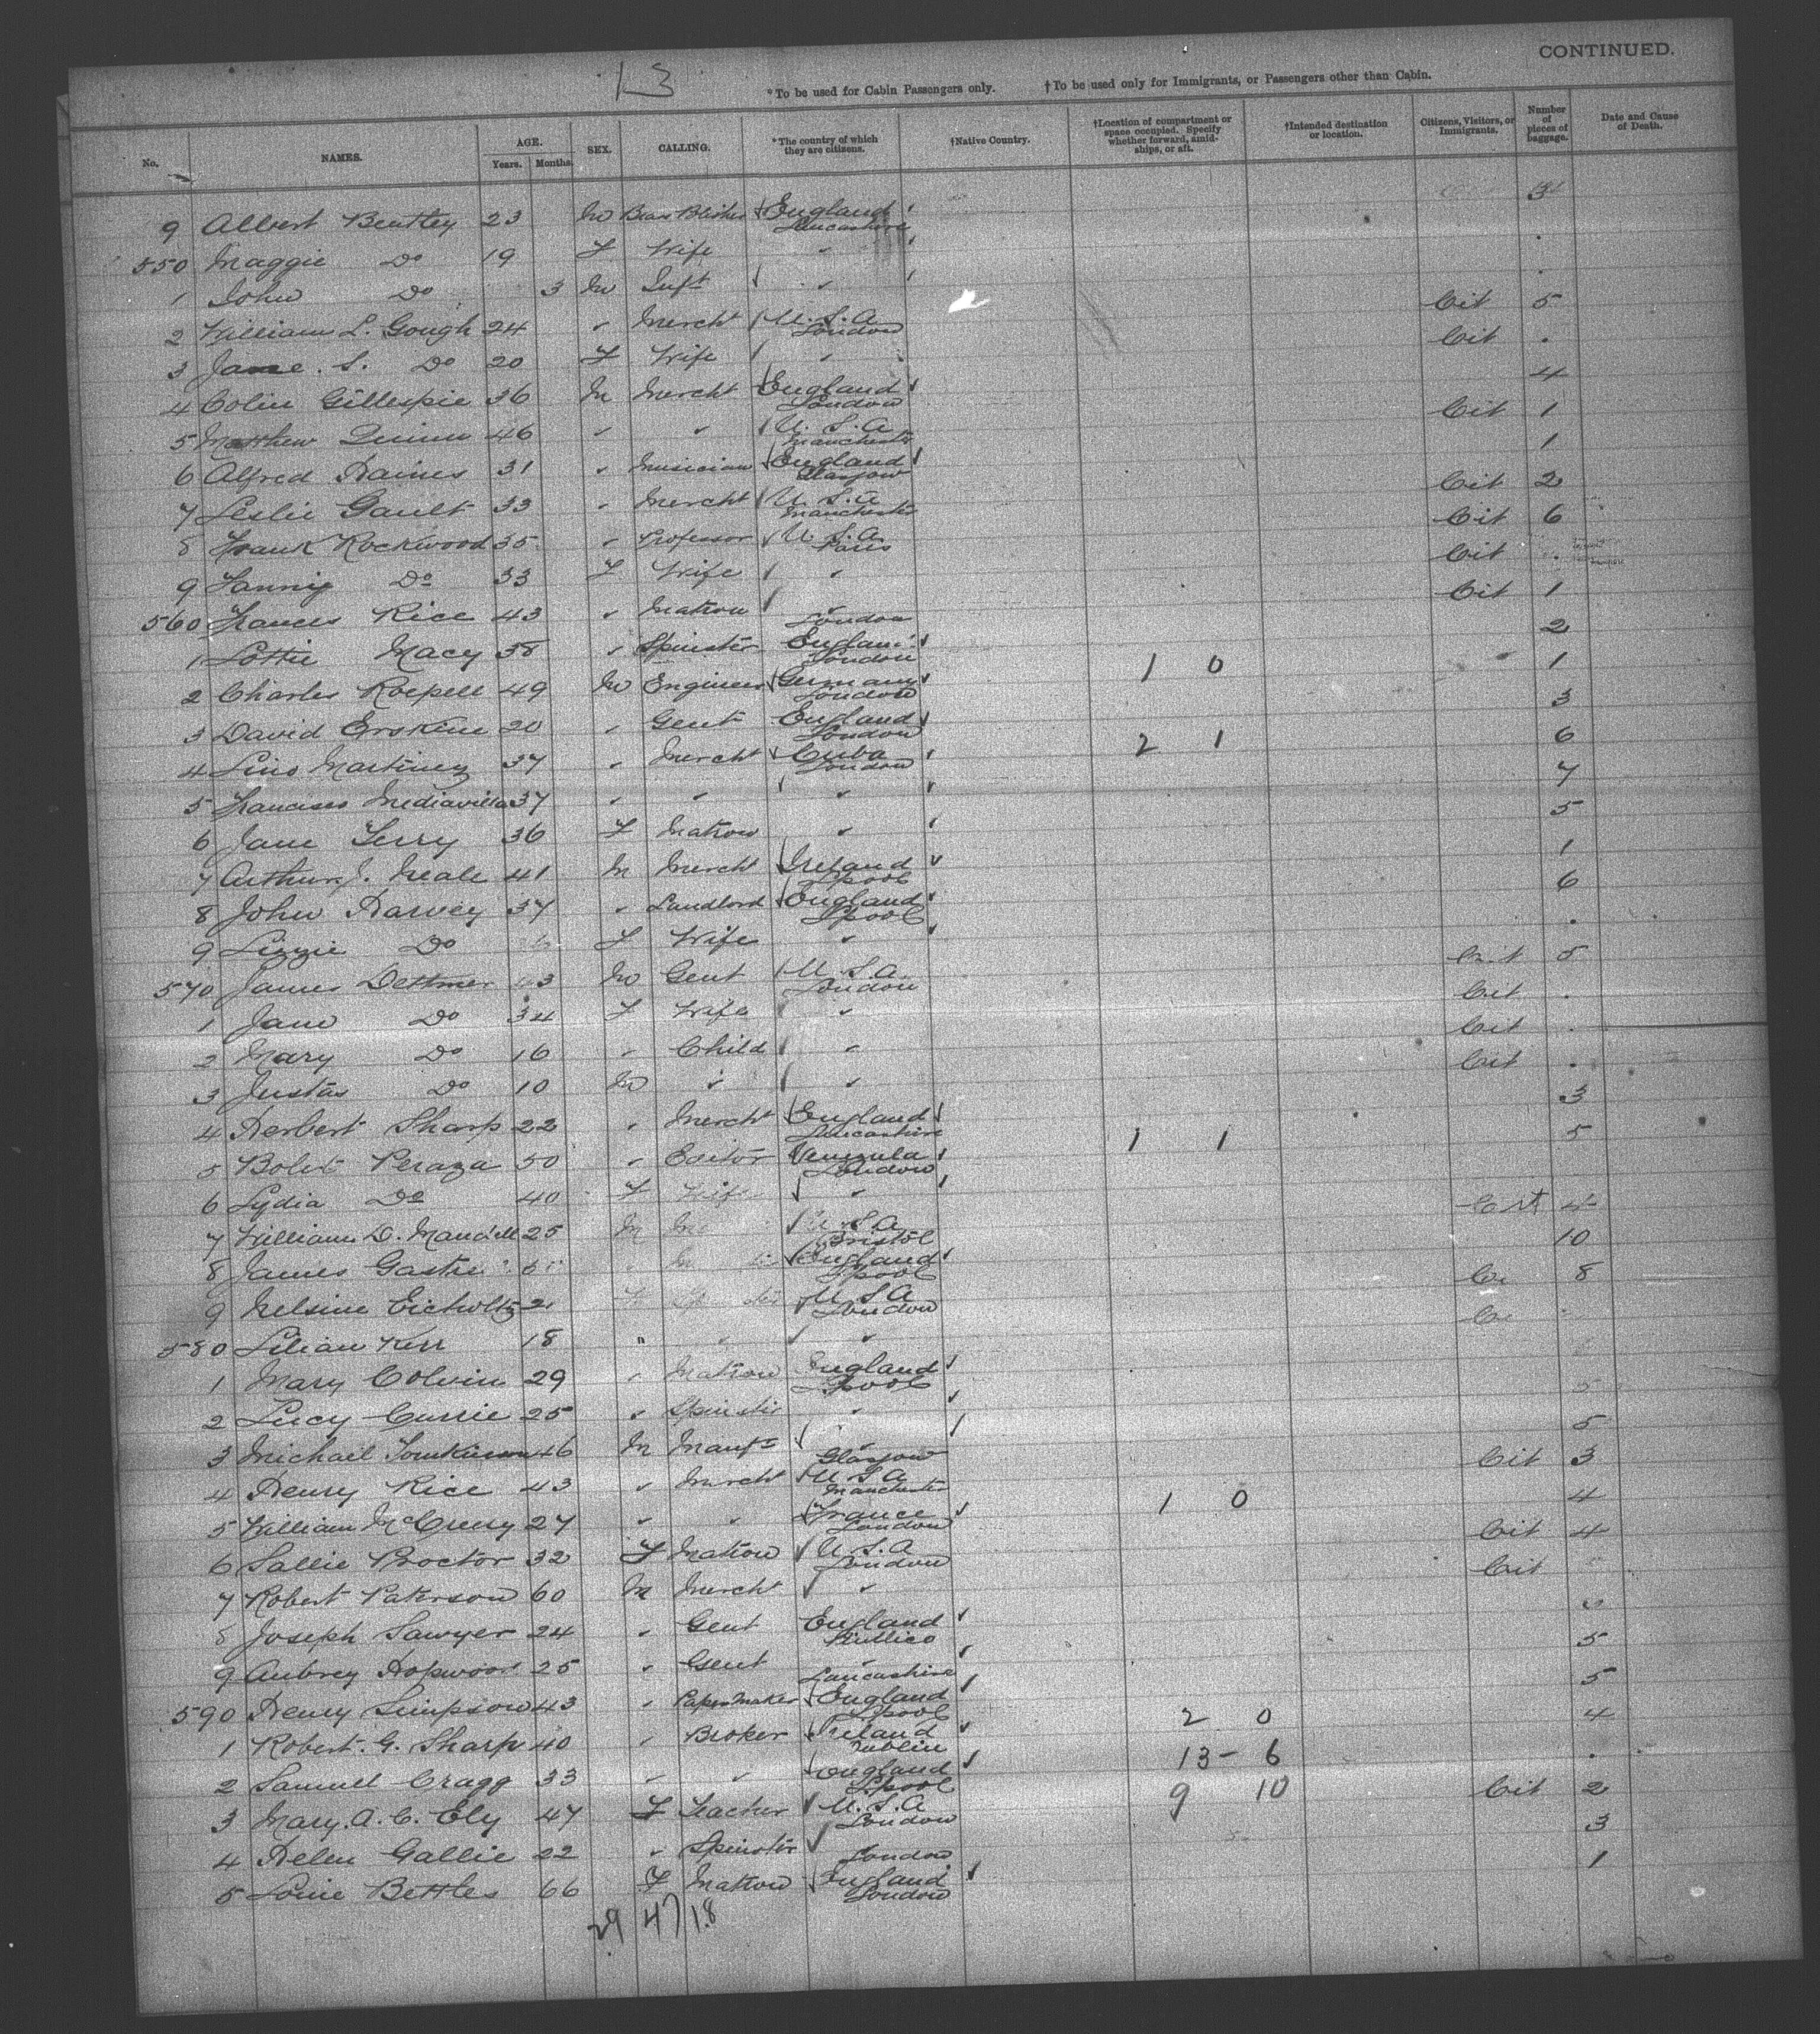 CONTINUED.
13
*To be used for Cabin Passengers only. †To be used only for Immigrants, or Passengers other than Cabin.
No. NAMES. AGE. Years. Months. SEX. CALLING. *The country of which they are citizens. †Native Country. †Location of compartment or space occupied. Specify whether forward, amidships, or aft. †Intended destination or location. Citizens, Visitors, or Immigrants. Number of pieces of baggage. Date and Cause of Death.
9 Albert Bentley 23 M England Lancashire 3
550 Maggie Do 19 F Wife "
1 John Do 3 M Inft "
2 William L. Gough 24 " Mercht U.S.A London Cit 5
3 Jane. S. Do 20 F Wife " Cit .
4 Colin Gillespie 36 M Mercht England London 4
5 Matthew Quinn 46 " " U.S.A Manchester Cit 1
6 Alfred Haines 31 " Musician England Glasgow 1
7 Leslie Gault 33 " Mercht U.S.A Manchester Cit 2
8 Frank Rockwood 35 " Professor U.S.A Paris Cit 6
9 Fanny Do 33 F Wife " Cit .
560 Frances Rice 43 " Matron " London Cit 1
1 Lottie Macy 38 " Spinster England London 2
2 Charles Roepell 49 M Engineer Germany London 1 0 1
3 David Erskine 20 " Gent England London 3
4 Lino Martinez 37 " Mercht Cuba London 2 1 6
5 Francisco Mediavilla 37 " " " 7
6 Jane Terry 36 F Matron " 5
7 Arthur J. Neale 41 M Mercht Ireland Lpool 1
8 John Harvey 37 " Landlord England Lpool 6
9 Lizzie Do F Wife " .
570 James Dettmer M Gent U.S.A London Cit 5
1 Jane Do 34 F Wife " Cit .
2 Mary Do 16 " Child " Cit .
3 Justas Do 10 M " " Cit .
4 Herbert Sharp 22 " Mercht England Lancashire 3
5 Bolet Peraza 50 " Editor Venezula London 1 1 5
6 Lydia Do 40 F Wife "
7 William D. 25 M U.S.A Bristol
8 James England Lpool 10
9 Nelsine Eicholtz U.S.A London 8
580 Lilian Kerr 18 " " "
1 Mary Colvin 29 " Matron England Lpool
2 Lucy Currie 25 " Spinster " 5
3 Michael Tomkinson 46 M Manfr " Glasgow 5
4 Henry Rice 43 " Mercht U.S.A Manchester Cit 3
5 William McCreery 27 " " France London 1 0 4
6 Sallie Proctor 32 F Matron U.S.A London Cit 4
7 Robert Paterson 60 M Mercht " Cit
8 Joseph Sawyer 24 " Gent England Pimlico
9 Aubrey Hopwood 25 " Gent " Lancashire 5
590 Henry Simpson 43 " Paper Maker England Lpool 5
1 Robert. G. Sharp 40 " Broker Ireland Dublin 2 0 4
2 Samuel Cragg 33 " " England Lpool 13 - 6 .
3 Mary. A. C. Ely 47 F Teacher U.S.A London 9 10 Cit 2
4 Helen Gallie 22 " Spinster London 3
5 Louie Bettles 66 F Matron England London 1
29 47 18